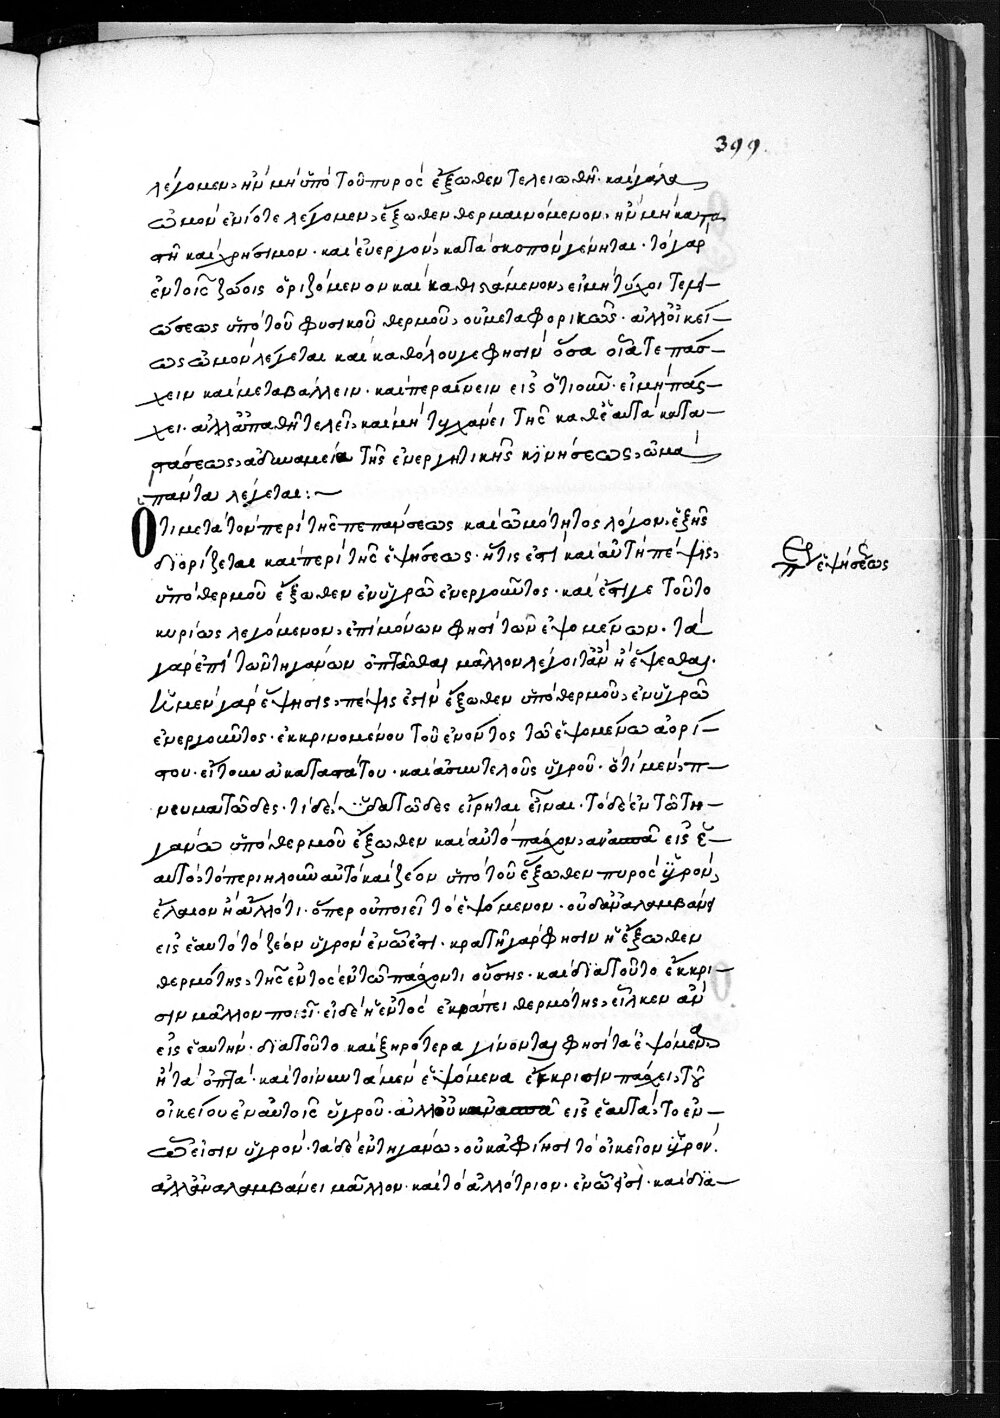 399
λέγομεν, ἢν μὴ ὑπὸ τοῦ πυρὸς ἔξωθεν τελειωθῇ· καὶ γάλα
ὠμὸν ἐνίοτε λέγομεν, ἔξωθεν θερμαινόμενον, ἢν μὴ κατα
στῇ καὶ χρήσιμον· καὶ ἐνεργὸν, κατὰ σκοπὸν γένηται· τὸ γὰρ
ἐν τοῖς ζώοις ὁριζόμενον καὶ καθιστάμενον, εἰ μὴ τύχοι τελει-
ώσεως ὑπὸ τοῦ φυσικοῦ θερμοῦ, οὐ μεταφορικῶς· ἀλλ' οἰκεί-
ως ὠμὸν λέγεται καὶ καθόλου γε φησὶν ὅσα οἷά τε πάσ-
χειν καὶ μεταβάλλειν· καὶ περαίνειν εἰς ὁτιοῦν· εἰ μὴ πάσ-
χει· ἀλλ' ἀπαθῆ τελεῖ, καὶ μὴ τυγχάνει τῆς καθ' ἑαυτὰ κατα-
στάσεως, ἀδυναμεία τῆς ἐνεργητικῆς κινήσεως, ὠμὰ
πάντα λέγεται:~
Ὅτι μετὰ τὸν περὶ τῆς πεπάνσεως καὶ ὠμότητος λόγον, ἑξῆς
διορίζεται καὶ περὶ τῆς ἑψήσεως· ἥτις ἐστὶ καὶ αὐτὴ πέψις,
ὑπὸ θερμοῦ ἔξωθεν ἐν ὑγρῷ ἐνεργοῦντος· καὶ ἔστι γε τοῦτο
κυρίως λεγόμενον, ἐπὶ μόνων φησὶ τῶν ἑψομένων· τὰ
γὰρ ἐπὶ τῶν τηγάνων ὀπτᾶσθαι μᾶλλον λέγοιτ' ἂν ἢ ἕψεσθαι.
ἡ μὲν γὰρ ἕψησις, πέψις ἐστὶν ἔξωθεν ὑπὸ θερμοῦ, ἐν ὑγρῷ
ἐνεργοῦντος· ἐκκρινομένου τοῦ ἐνόντος τῷ ἑψομένῳ ἀορί-
στου· εἴτουν ἀκαταστάτου· καὶ ἀσυντελοῦς ὑγροῦ· ὅτι μὲν, π-
νευματῶδες· τὶ δὲ, ὑδατῶδες εἴρηται εἶναι· τὸ δὲ ἐν τῷ τη-
γάνῳ ὑπὸ θερμοῦ ἔξωθεν καὶ αὐτὸ πάσχον, ἀνασπᾷ εἰς ἑ-
αυτὸ, τὸ περικλοῦν αὐτὸ καὶ ζέον ὑπὸ τοῦ ἔξωθεν πυρὸς ὑγρὸν,
ἔλαιον ἢ ἄλλό τι· ὅπερ οὐ ποιεῖ τὸ ἑψόμενον· οὐδ' ἀναλαμβάνει
εἰς ἑαυτὸ τὸ ζέον ὑγρὸν ἐν ᾧ ἐστι· κρατῇ γάρ φησιν ἡ ἔξωθεν
θερμότης, τῆς ἐντὸς ἐν τῷ πάσχοντι οὔσης· καὶ διὰ τοῦτο ἔκκρι-
σιν μᾶλλον ποιεῖ· εἰ δὲ ἡ ἐντὸς ἐκράτει θερμότης, εἷλκεν ἂν
εἰς ἑαυτήν· διὰ τοῦτο καὶ ξηρότερα γίνονται φησὶ τὰ ἑψόμενα,
ἢ τὰ ὀπτά· καὶ τοίνυν τὰ μὲν ἑψόμενα ἔκκρισιν πάσχει, τοῦ
οἰκείου ἐν αὐτοῖς ὑγροῦ· ἀλλ' οὐκ ἀνασπᾷ εἰς ἑαυτὰ, τὸ ἐν
ᾧ εἰσιν ὑγρόν· τὰ δὲ ἐν τηγάνῳ, οὐκ ἀφίησι τὸ οἰκεῖον ὑγρόν.
ἀλλ' ἀναλαμβάνει μᾶλλον· καὶ τὸ ἀλλότριον· ἐν ᾧ ἐστί· καὶ διὰ-
περὶ ἑψήσεως